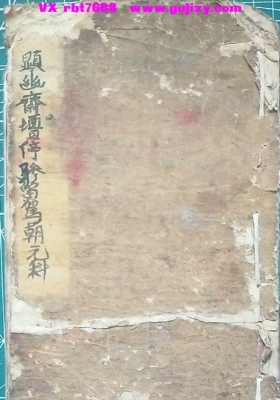 VX rbt7688 www.gujizy.com
顕幽齋壇停驂駕朝元科